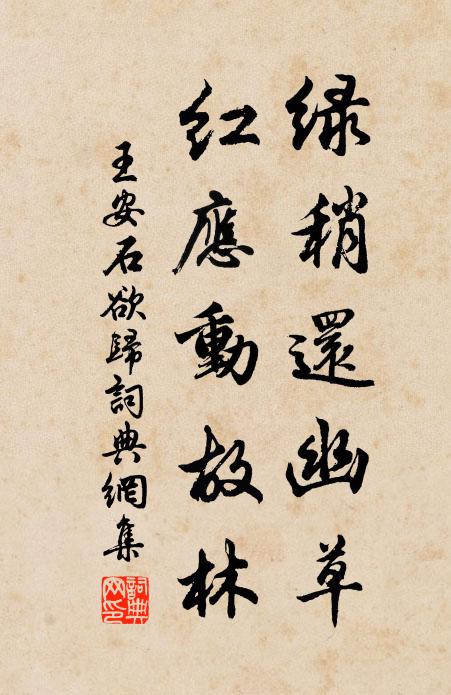 绿稍還幽草
红應動故林
王安石欲歸詞典網集
詞典網印